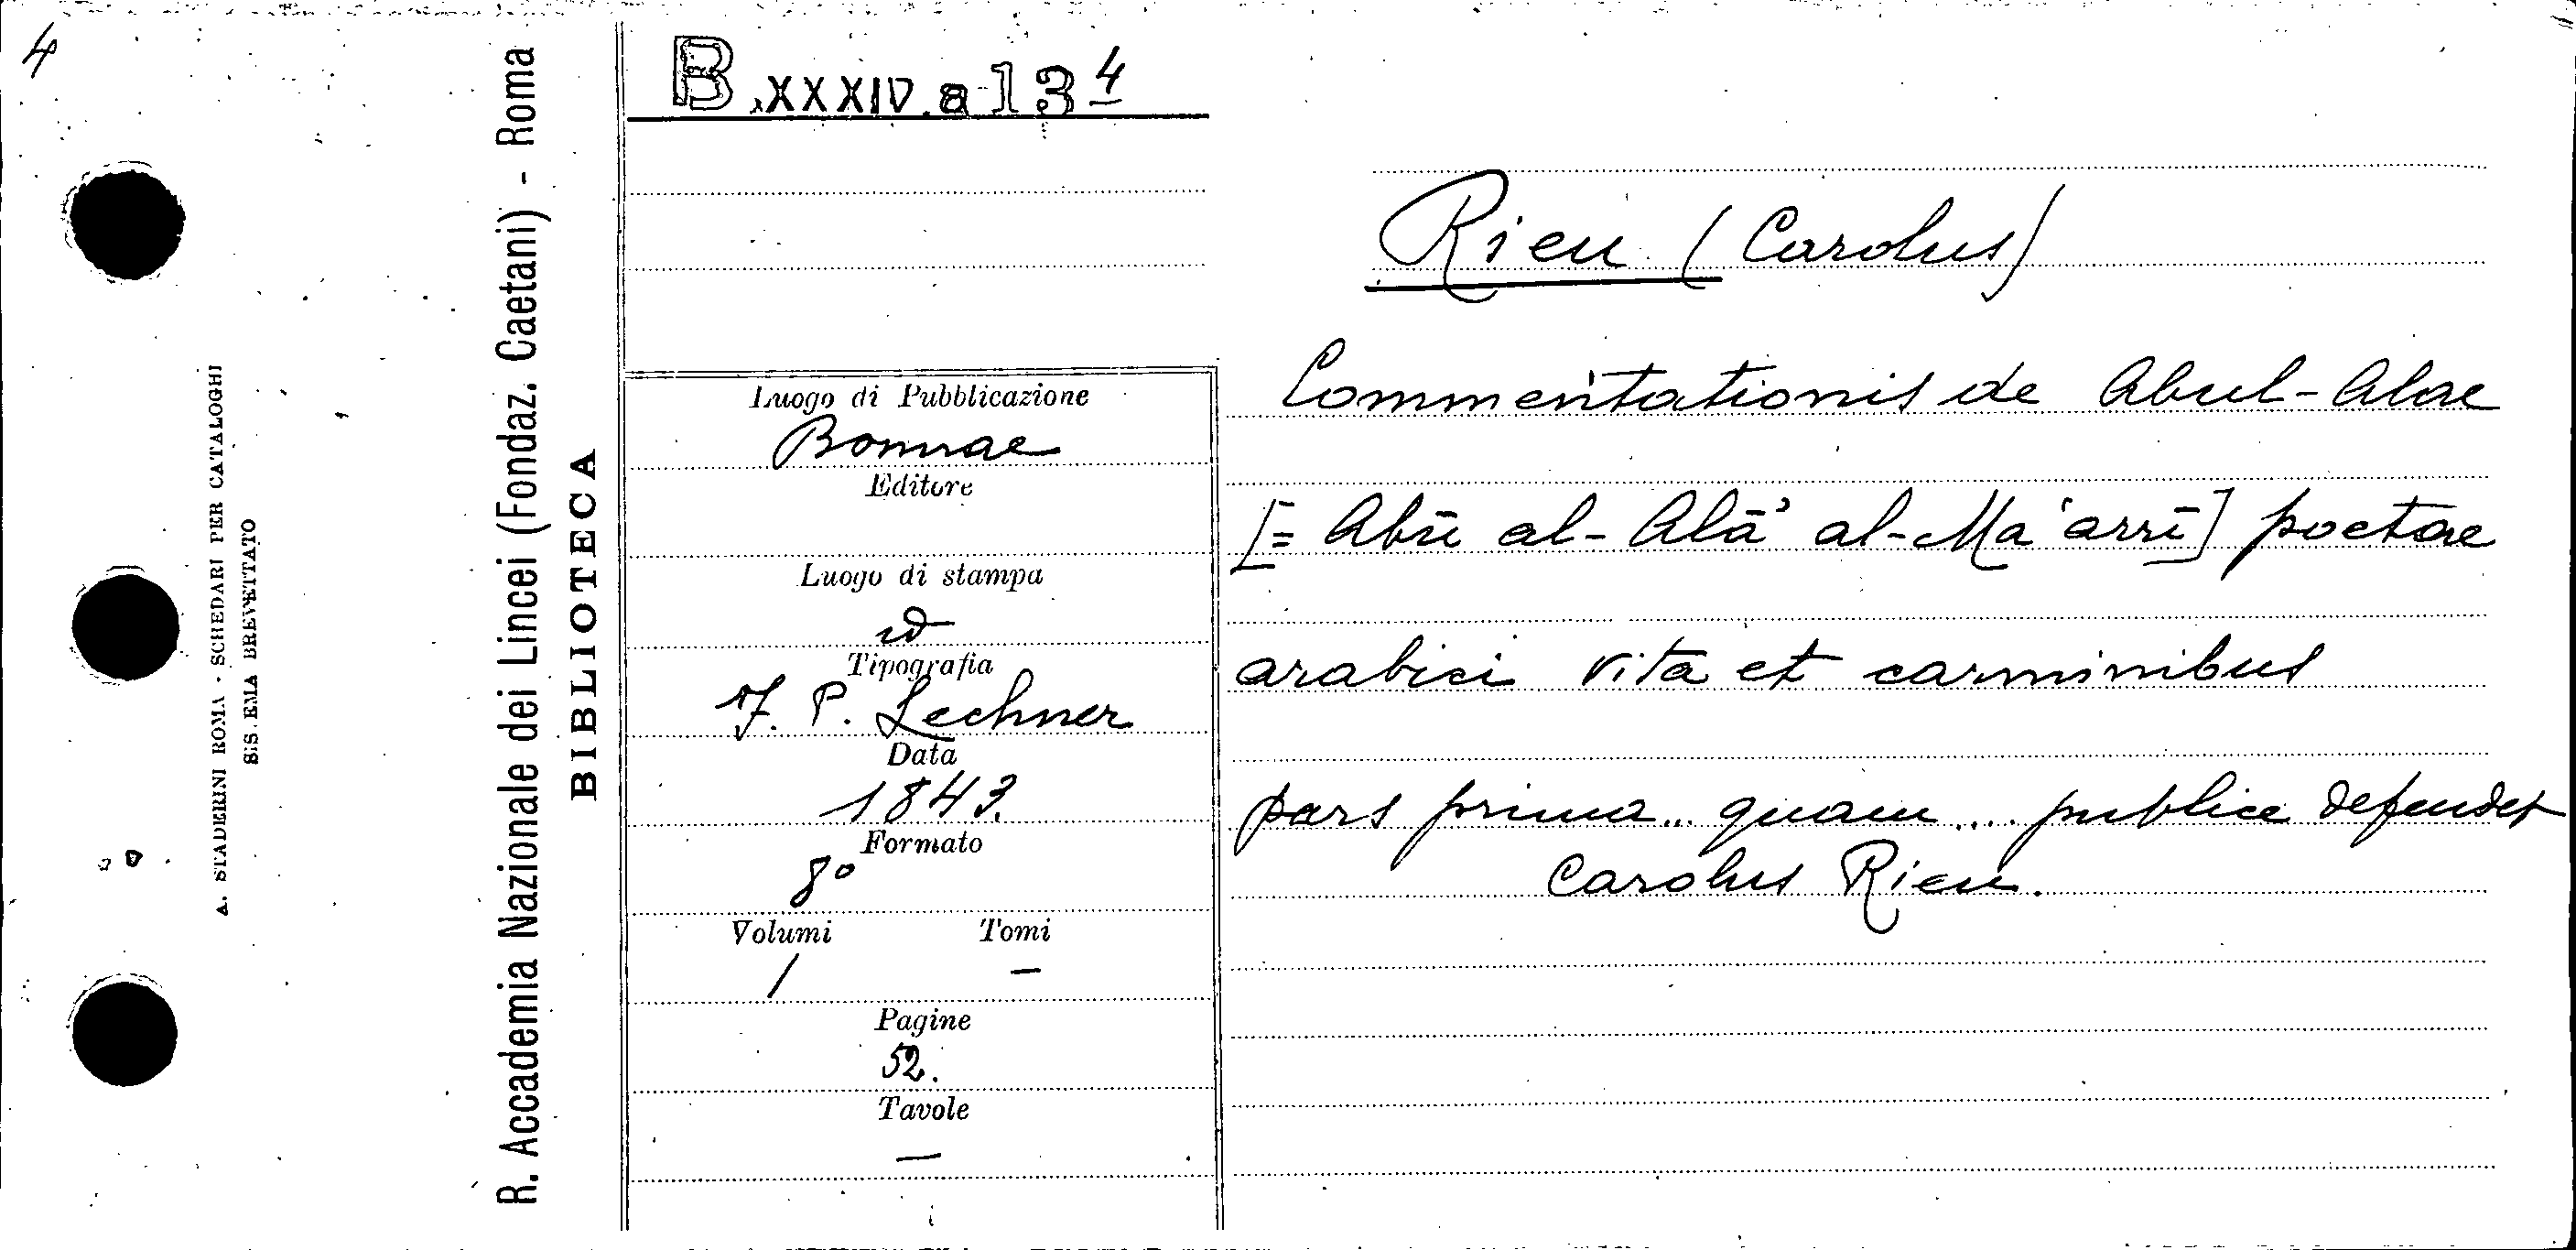 4
A. STADERINI ROMA - SCHEDARI PER CATALOGHI
SISTEMA BREVETTATO
R. Accademia Nazionale dei Lincei (Fondaz. Caetani) - Roma
BIBLIOTECA
B.XXXIV.a 13 4
Luogo di Pubblicazione
Bonnae
Editore
Luogo di stampa
id
Tipografia
J. P. Lechner
Data
1843.
Formato
8º
Volumi Tomi
1 —
Pagine
52.
Tavole
—
Rieu (Carolus)
Commentationis de Abul-Alae
[= Abū al-Alā' al-Ma'arrī] poetae
arabici vita et carminibus
pars prima .. quam .... publice defendet
Carolus Rieu.